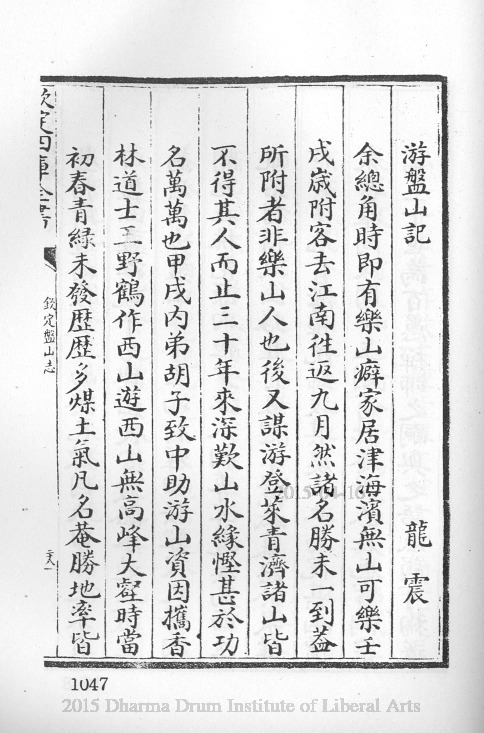 游盤山記
龍震
余總角時即有樂山癖家居津海濱無山可樂壬
戌歲附客去江南往返九月然諸名勝未一到蓋
所附者非樂山人也後又謀游登萊青濟諸山皆
不得其人而止三十年來深歎山水緣慳甚於功
名萬萬也甲戌內弟胡子致中助游山資因攜香
林道士王野鶴作西山遊西山無高峰大壑時當
初春青綠未發歷歷多煤土氣凡名菴勝地率皆
欽定四庫全書
欽定盤山志
1047
2015 Dharma Drum Institute of Liberal Arts